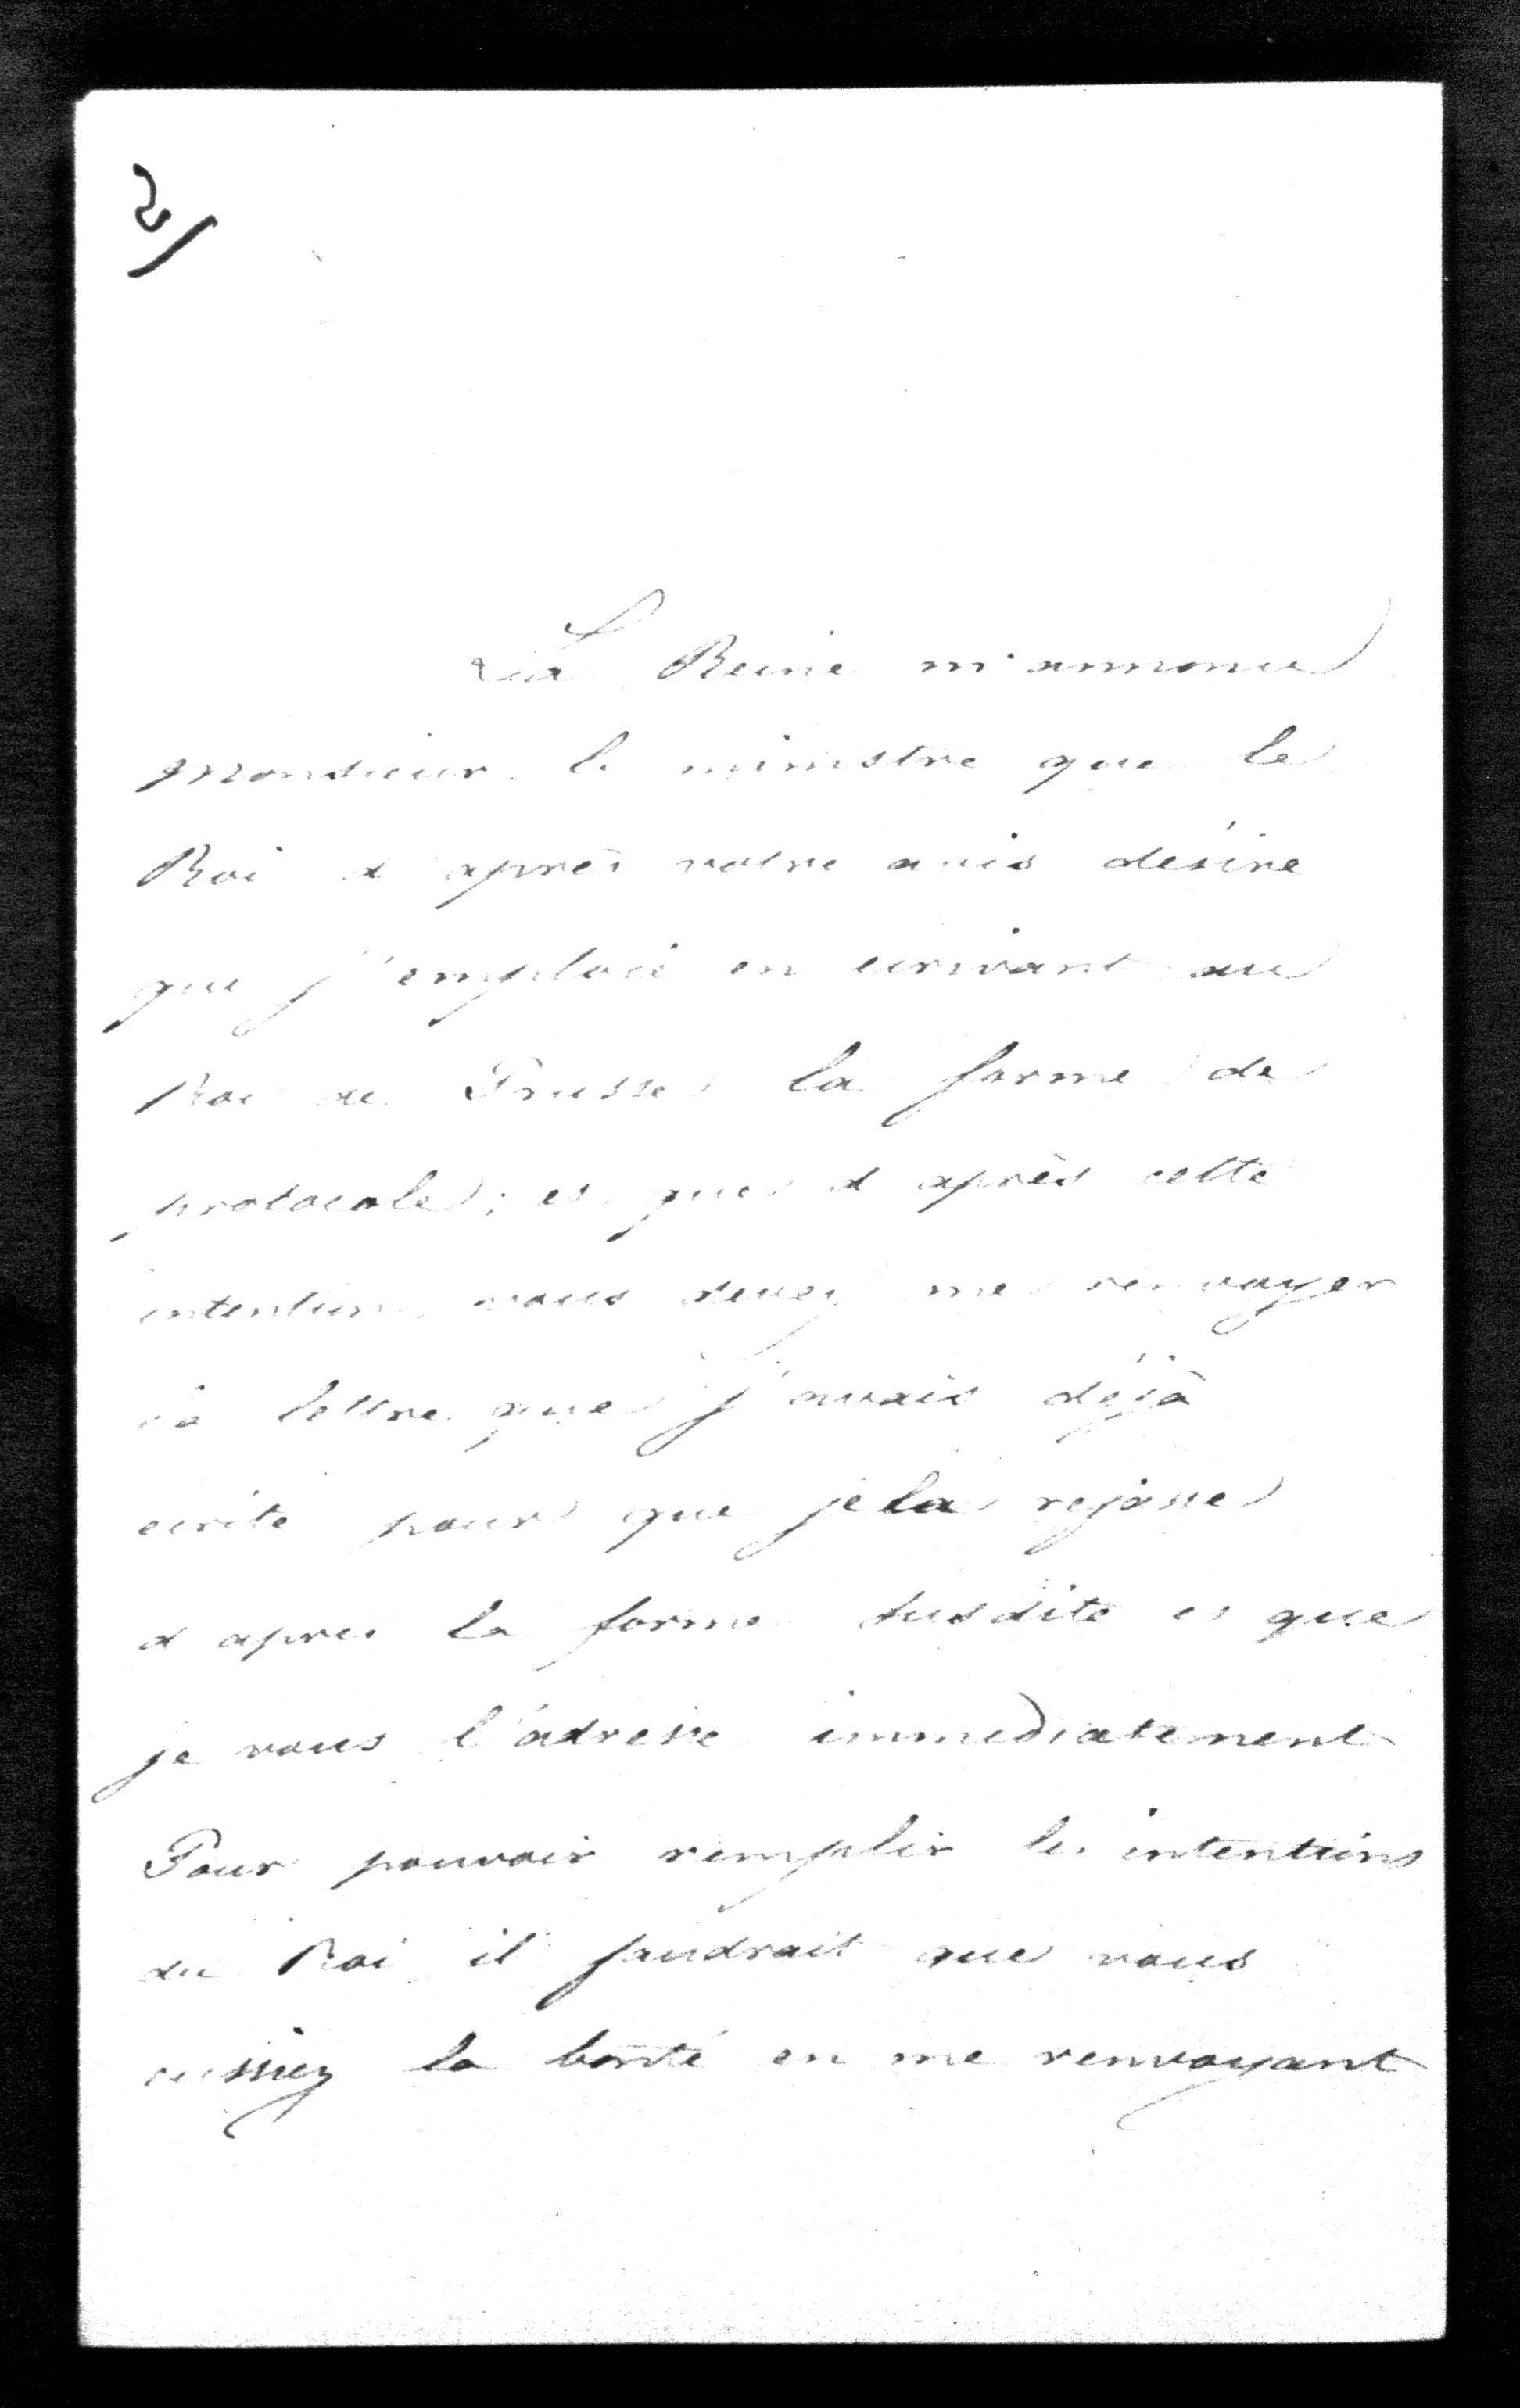 2/
La Reine m'annonce
Monsieur le ministre que le
Roi d'après votre avis désire
que j'emploie en ecrivant au
Roi de Prusse la forme de
protocole; et que d après cette
intention vous devez me renvoyer
la lettre que j'avais déjà
ecrite pour que je la refasse
d apres la forme susdite et que
je vous l'adresse immediatement
Pour pouvoir remplir les intentions
du Roi il faudrait que vous
eussiez la bonté en me renvoyant